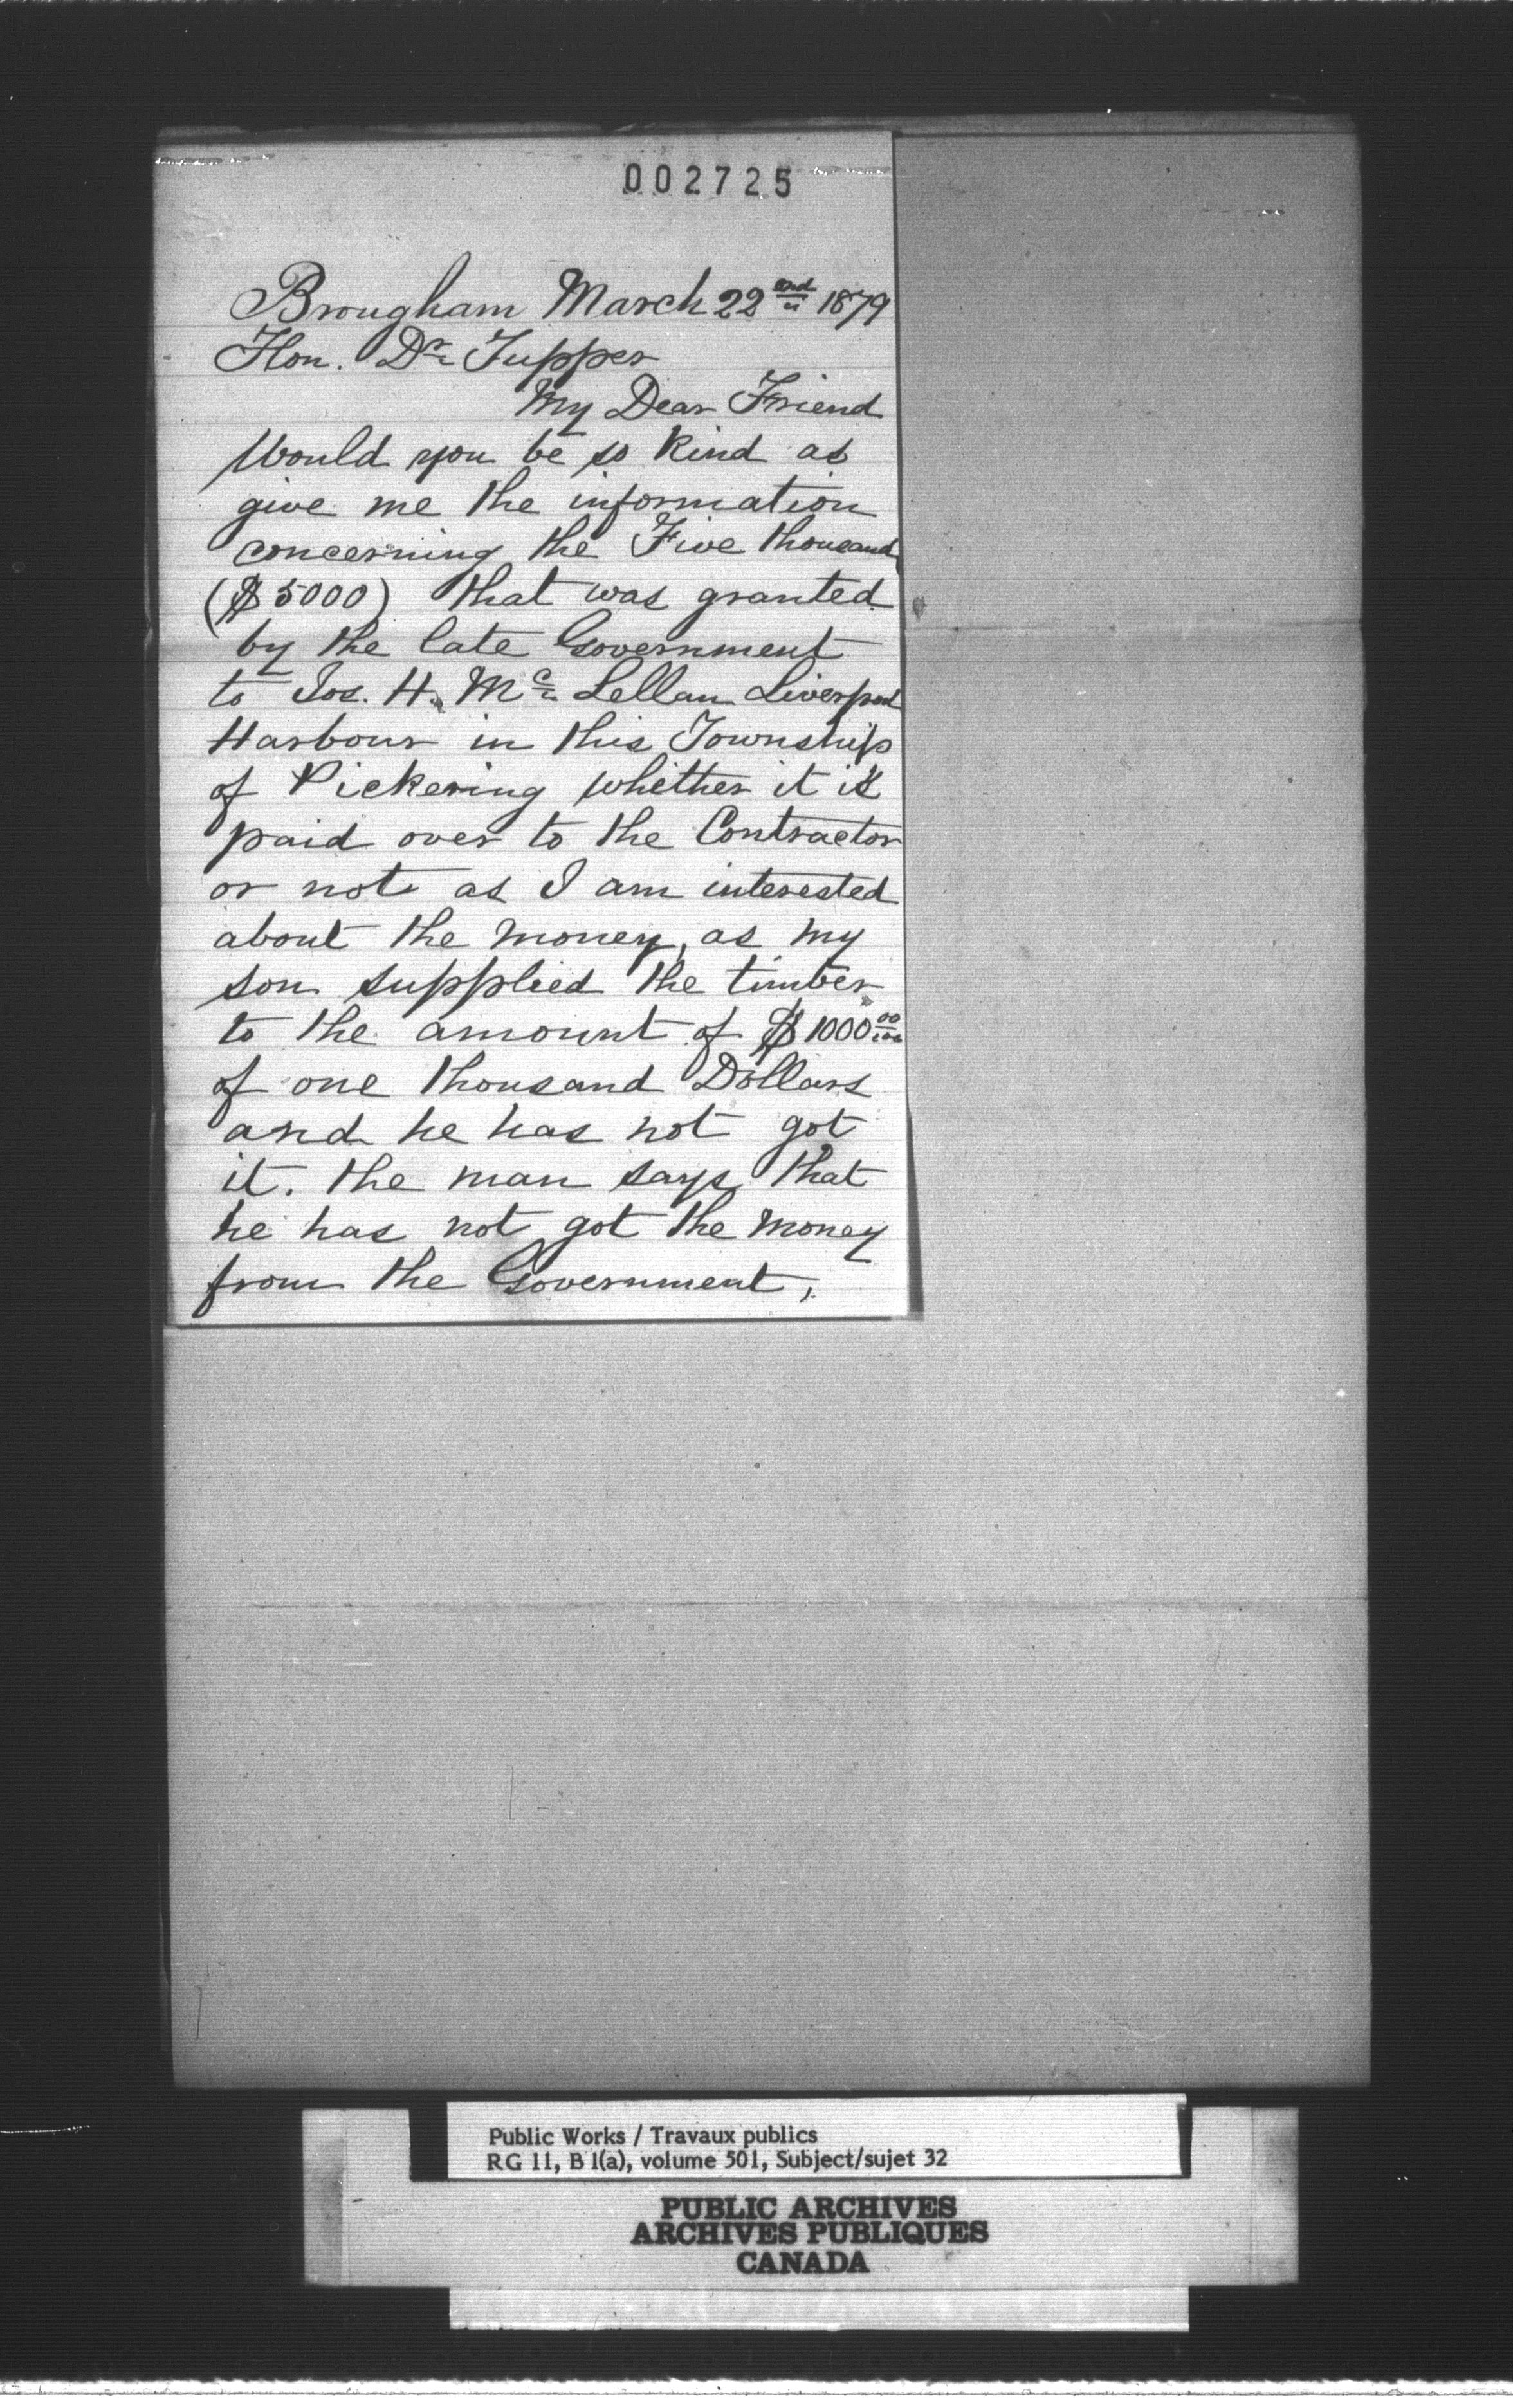 002725
Brougham March 22nd 1879
Hon. Dr Tupper
My Dear Friend
Would you be so kind as
give me the information
concerning the Five thousand
($5000) that was granted
by the late Government
to Jos. H. Mc Lellan Liverpool
Harbour in this Township
of Pickering whither it is
paid over to the Contractor
or not as I am interested
about the money, as my
son supplied the timber
to the amount of $1000 00/100
of one thousand Dollars
and he has not got
it. the man says that
he has not got the money
from the Government,
Public Works / Travaux publics
RG 11, B 1(a), volume 501, Subject/sujet 32
PUBLIC ARCHIVES
ARCHIVES PUBLIQUES
CANADA